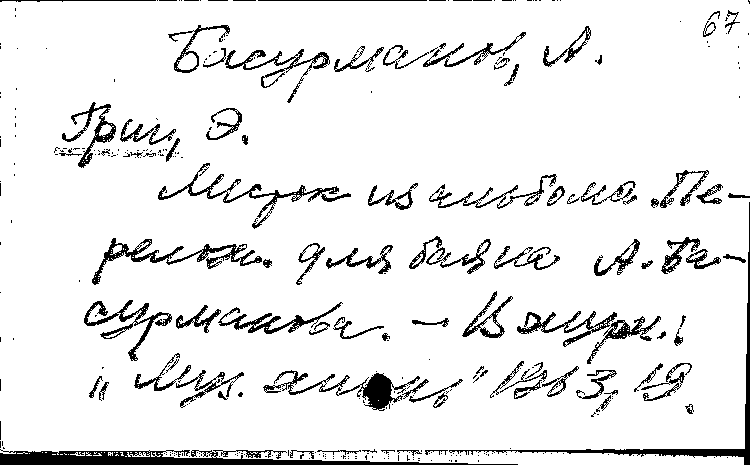 67
Басурманов, А.
Григ, Э.
Листок из альбома. Пе-
релож. для баяна А. Ба-
сурманова. – В журн.:
„Муз. жизнь" 1963, 19.